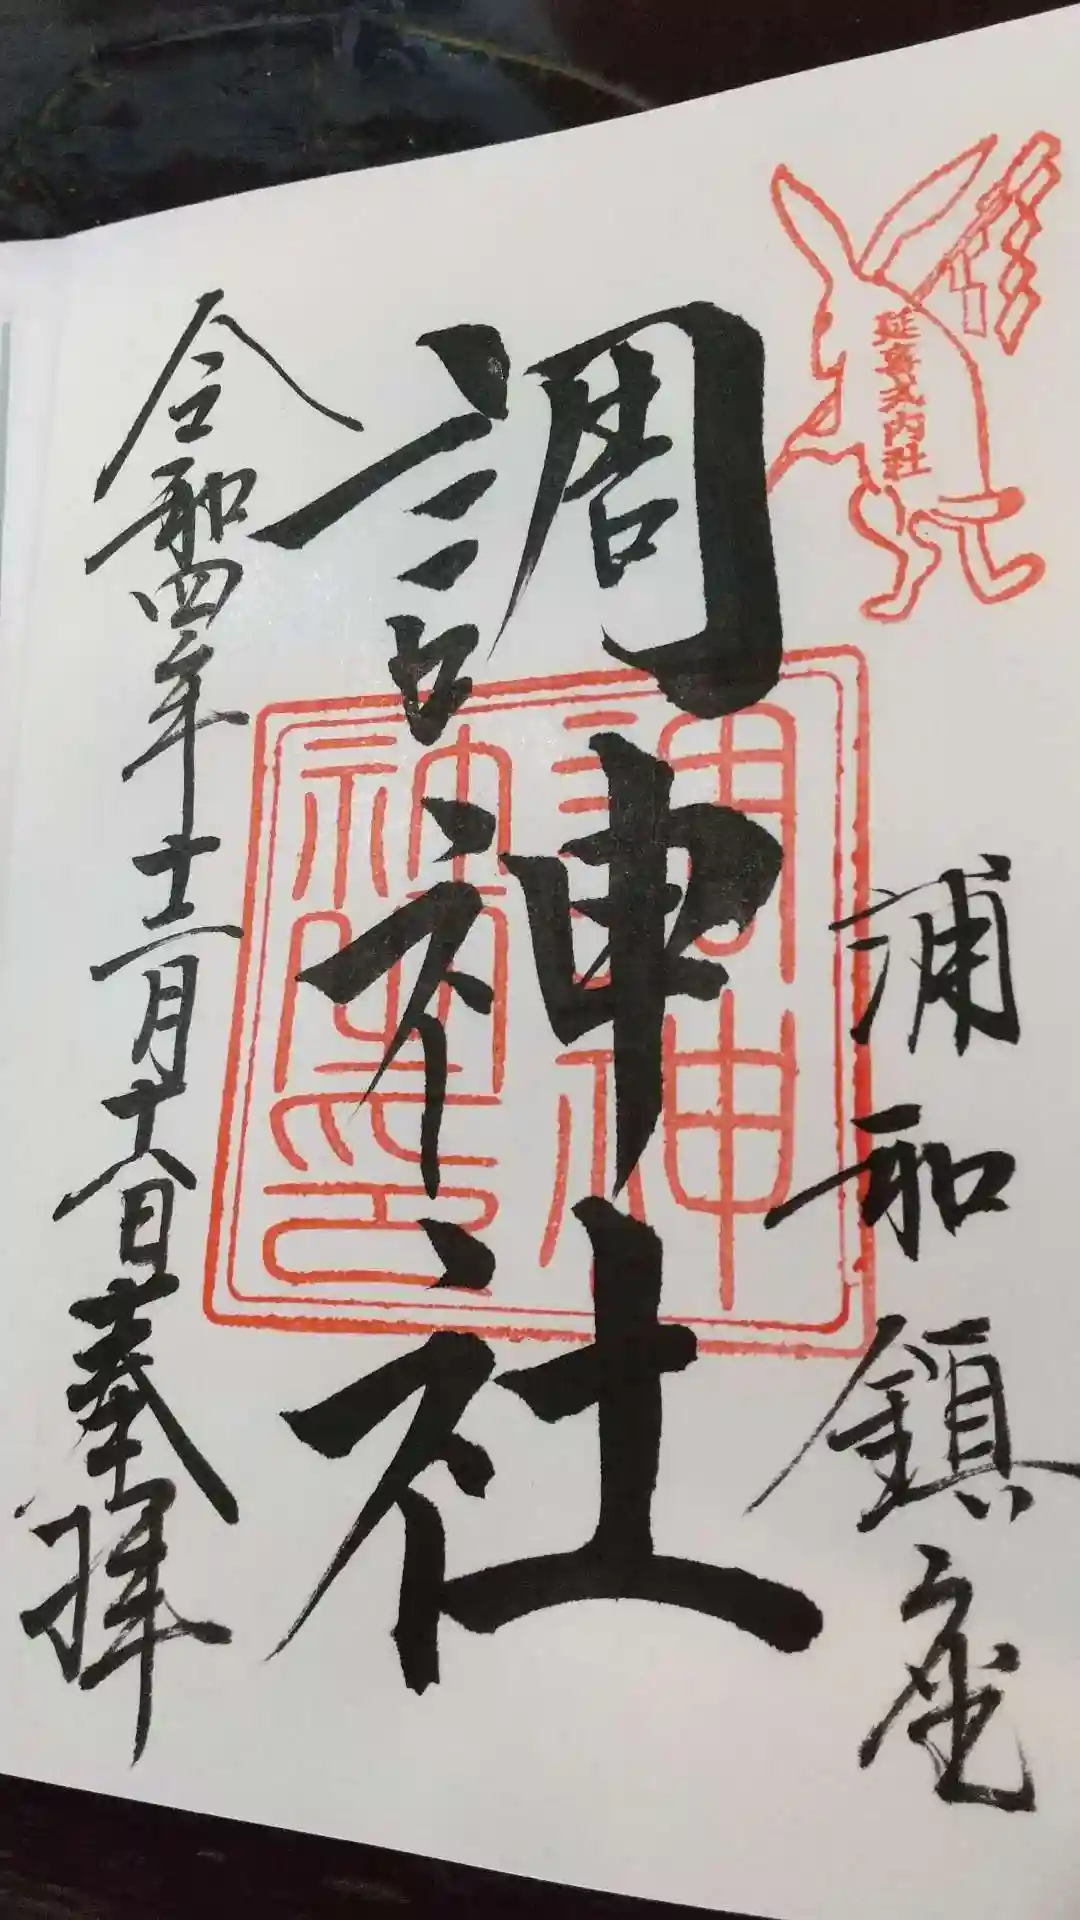 延喜式内社
浦和鎮座
調神社
令和四年十二月十八日奉拝